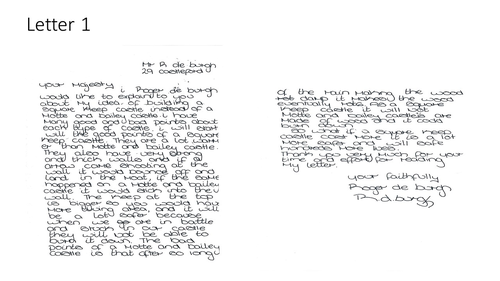 Letter 1
Mr R. de burgh
29 castleford
Your Majesty, I Roger de burgh
would like to explain to you
about My idea of building a
square keep castle instead of a
Motte and bailey castle. I have
Many good and bad points about
each type of castle. I will start
with the good points of a square
keep castle. They are a lot
er than Motte and bailey castle.
They also have very
and thick walls and if a
arrow came at the
wall it would bounce off and
land in the Moat, if the same
happened on a Motte and bailey
castle it would into the
wall. The keep at the top
is bigger so you would have
More area, and it will
be a lot safer because
when we are in battle
and stuck in our castle
they will not be able to
burn it down. The bad
points of a Motte and bailey
castle is that after so long
of the rain Making the wood
damp it Makes the wood
eventually
keep castle it will not
Motte and bailey castles are
Made of wood and it could
burn down.
So what if a square keep
castle cost More it is a lot
More safer and will save
hundreds More lives.
Thank you very Much for your
time and effort for reading
My letter.
your faithfully
Roger de burgh
R.d.burgh